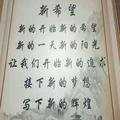 新希望
新的开始新的希望
新的一天新的阳光
让我们开始新的追求
接下新的梦想
写下新的辉煌